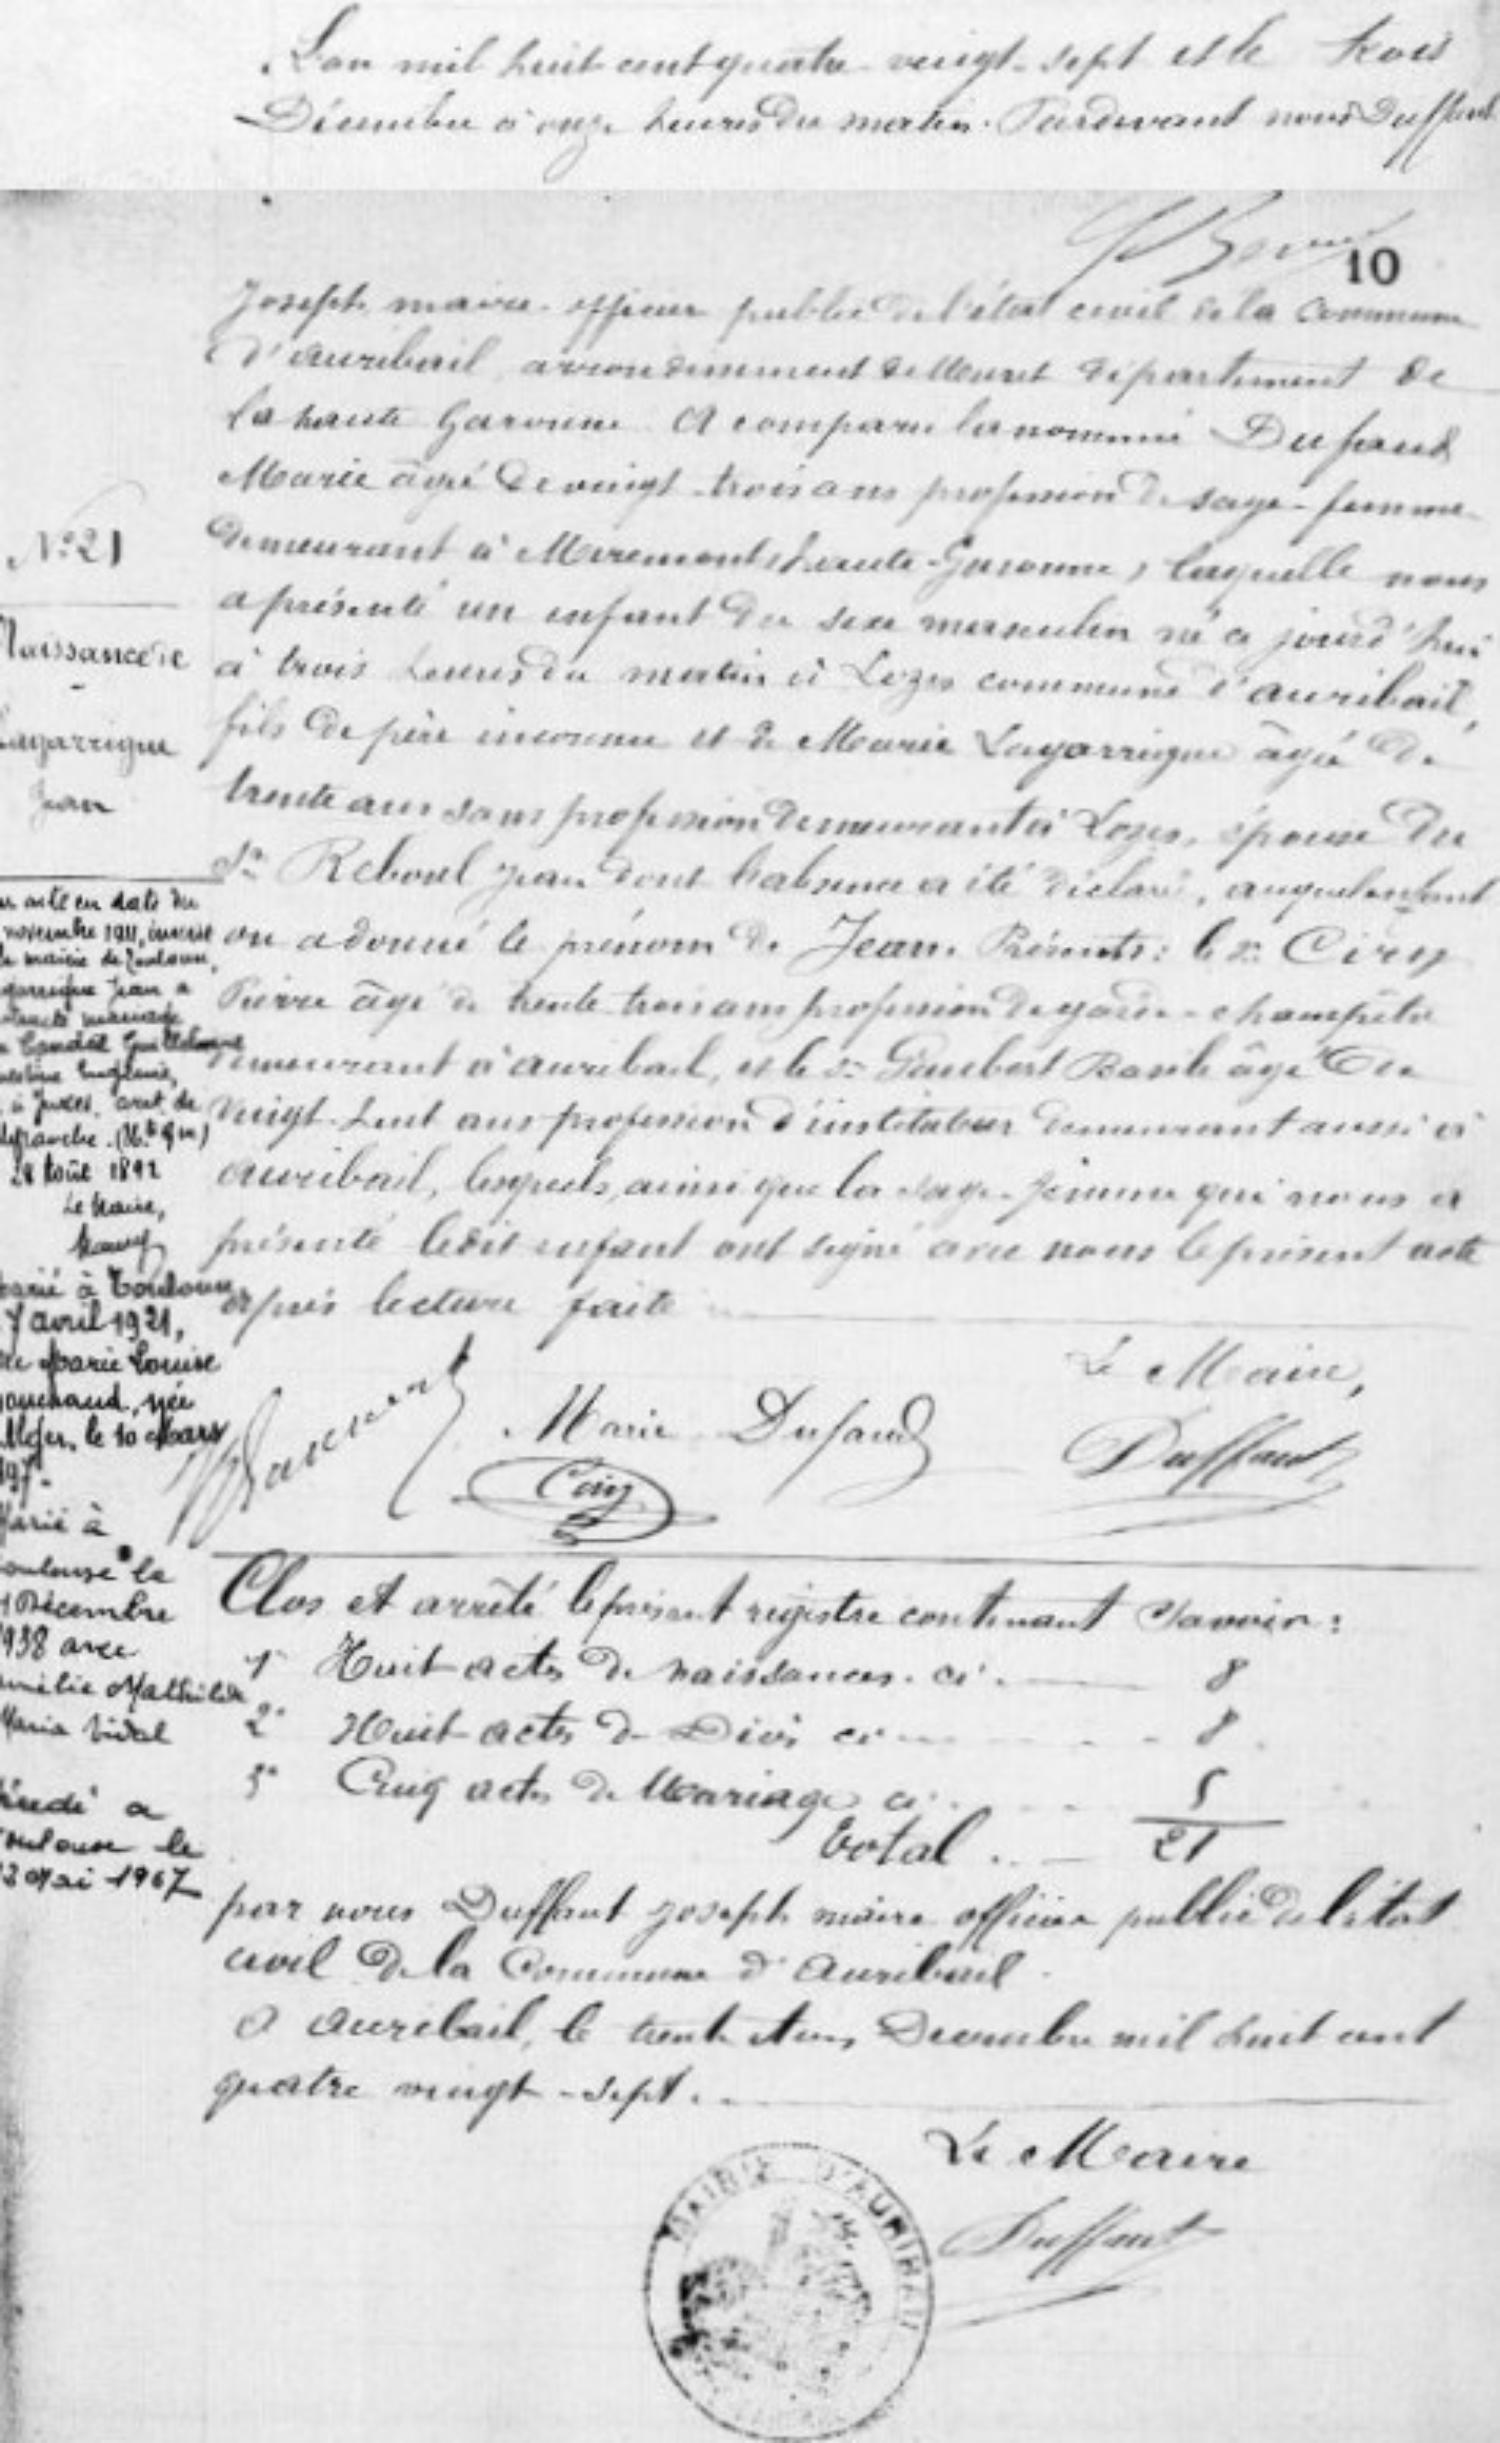 L'an mil huit cent quatre-vingt-sept et le trois
Décembre à onze heures du matin. Pardevant nous Duffaut
10
Joseph, maire officier public de l'état civil de la commune
d'auribail, arrondissement de Muret département de
la haute Garonne A comparu la nommée Dufaud
Marie âgé de vingt-trois ans profession de sage-femme
demeurant à Miremont (haute-Garonne) laquelle nous
a présenté un enfant du sexe masculin né ce jourd'hui
à trois heures du matin à Lozes commune d'auribail,
fils de père inconnu et de Marie Lagarrigue âgée de
trente ans sans profession demeurant à Lozes, épouse du
Sr Reboul Jean dont l'absence a été déclaré, auquel enfant
on a donné le prénom de Jean. Présents: le Sr Ciry
Pierre âgé de trente trois ans profession de garde-champêtre
demeurant à auribail, et le Sr Basile âgé de
Vingt-huit ans profession d'instituteur demeurant aussi à
auribail, lesquels, ainsi que la sage-femme qui nous a
présenté ledit enfant ont signé avec nous le présent acte
après lecture faite
Le Maire,
Marie Dufaud
Duffaut
Ciry
N° 21
Naissance de
Lagarrigue
Jean
acte en date du
novembre 1911, inscrit
mairie de Toulouse,
Jean a
mariage
Eugénie,
à arrt. de
(Hte Gne)
28 Août 1892
Le Maire,
marié à Toulouse
7 avril 1921,
Marie Louise
née
Alger, le 10 Mars
Marié à
Toulouse le
Décembre
1938 avec
Amélie Mathilde
Maria Vidal
Décédé à
Toulouse le
Mai 1967
Clos et arrêté le présent registre contenant Savoir:
1° Huit actes de naissances. ci 8
2° Huit actes de Décès ci 8
3° Cinq actes de Mariage ci 5
Total 21
par nous Duffaut Joseph maire officier public de l'état
civil de la Commune d'Auribail
A Auribail, le trente et un Décembre mil huit cent
quatre vingt-sept.
Le Maire
Duffaut
MAIRIE D'AURIBAIL